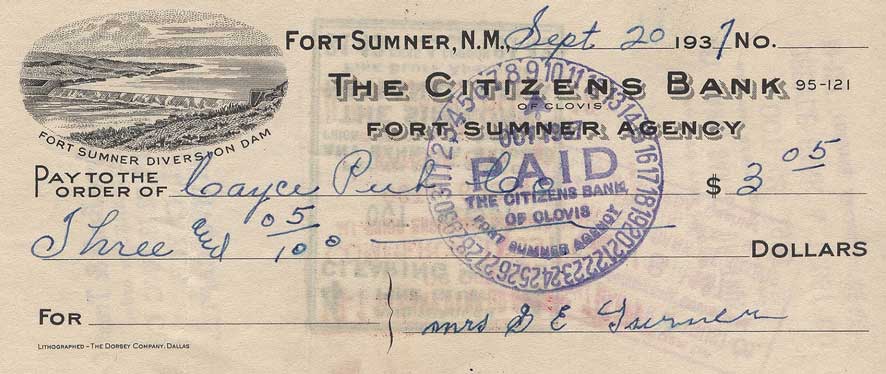 FORT SUMNER, N.M., Sept 20 1937 No.
THE CITIZENS BANK 95-121
OF CLOVIS
FORT SUMNER AGENCY
FORT SUMNER DIVERSION DAM
PAY TO THE
ORDER OF Cayce Pub Co $ 3 05
Three and 05/100 DOLLARS
FOR
mrs S E Turner
LITHOGRAPHED – THE DORSEY COMPANY, DALLAS
7 8 9 10 11 12 13 14 15 16 17 18 19 20 21 22 23 24 25 26 27 28 29 30 31 1 2 3 4 5 6
OCT 1937
PAID
THE CITIZENS BANK
OF CLOVIS
FORT SUMNER AGENCY